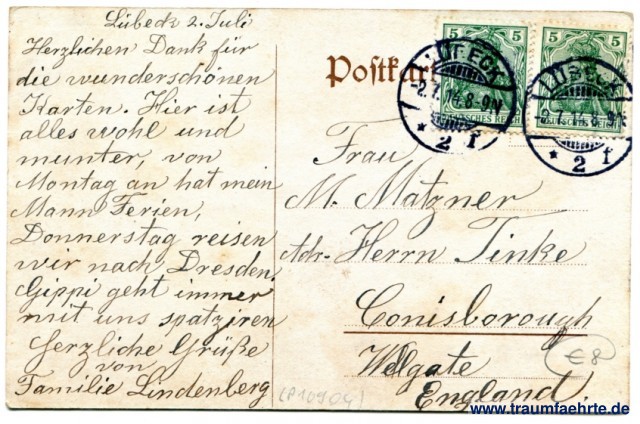 Lübeck 2. Juli
Herzlichen Dank für
die wunderschönen
Karten. Hier ist
alles wohl und
munter, von
Montag an hat mein
Mann Ferien,
Donnerstag reisen
wir nach Dresden.
Gippi geht immer
mit uns spatziren
Herzliche Grüße
von
Familie Lindenberg
Postkar
5 5
5 5
DEUTSCHES REICH
LÜBECK
2.7.14.8-9N
* 2 f
LÜBECK
2.7.14.8-9N
* 2 f
Frau
M. Matzner
Adr. Herrn Tinke
Conisborough
Wellgate
England.
€8
(P10904)
www.traumfaehrte.de